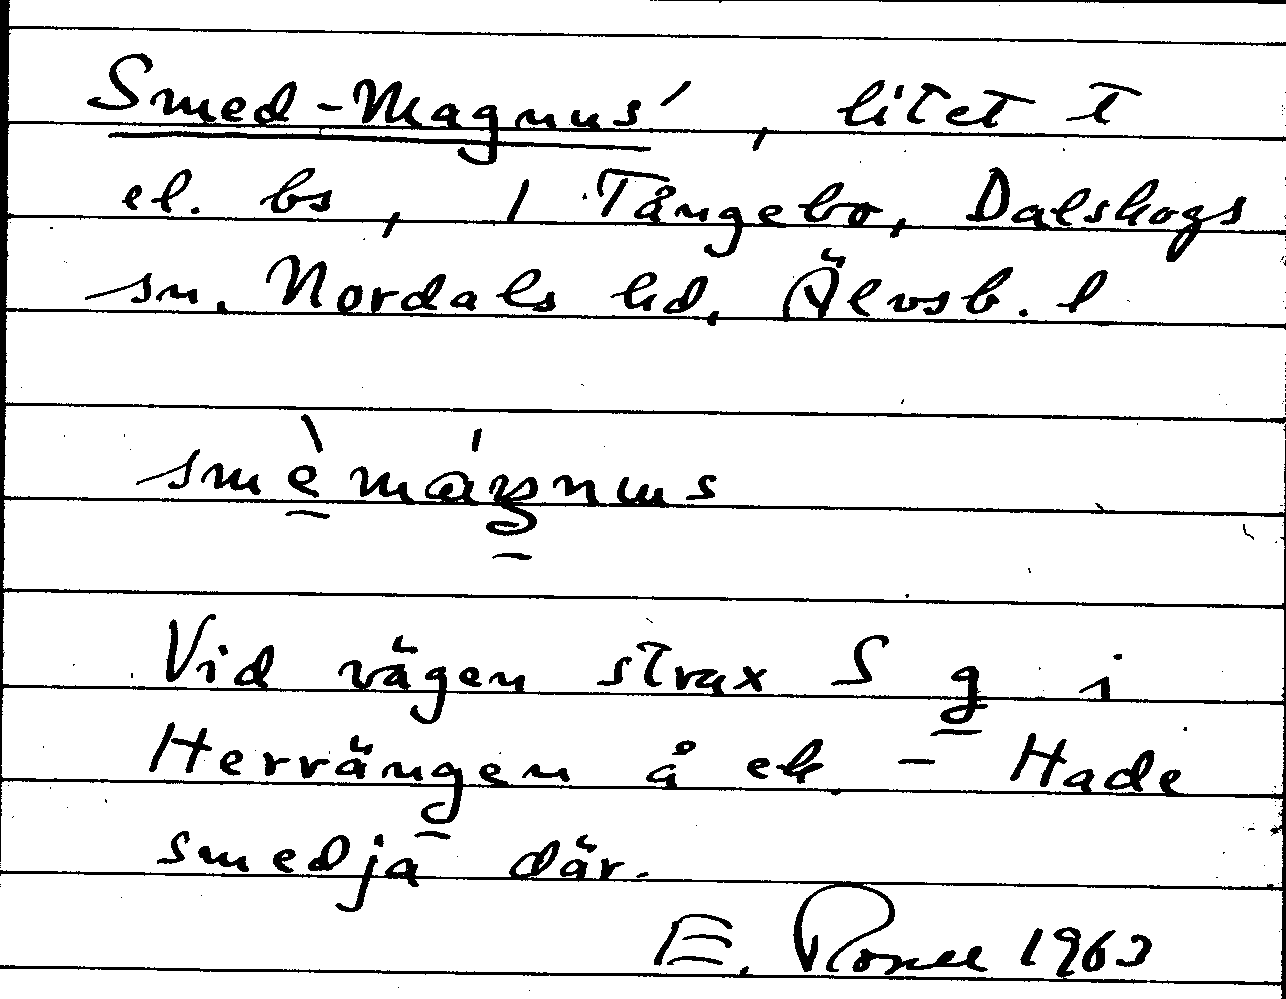 Smed-Magnus', litet t
el. bs, 1 Tångebo, Dalskogs
sn. Nordals hd, Älvsb. l
smèmágnus
Vid vägen strax S g i
Herrängen å ek. - Hade
smedja där.
E. 1963